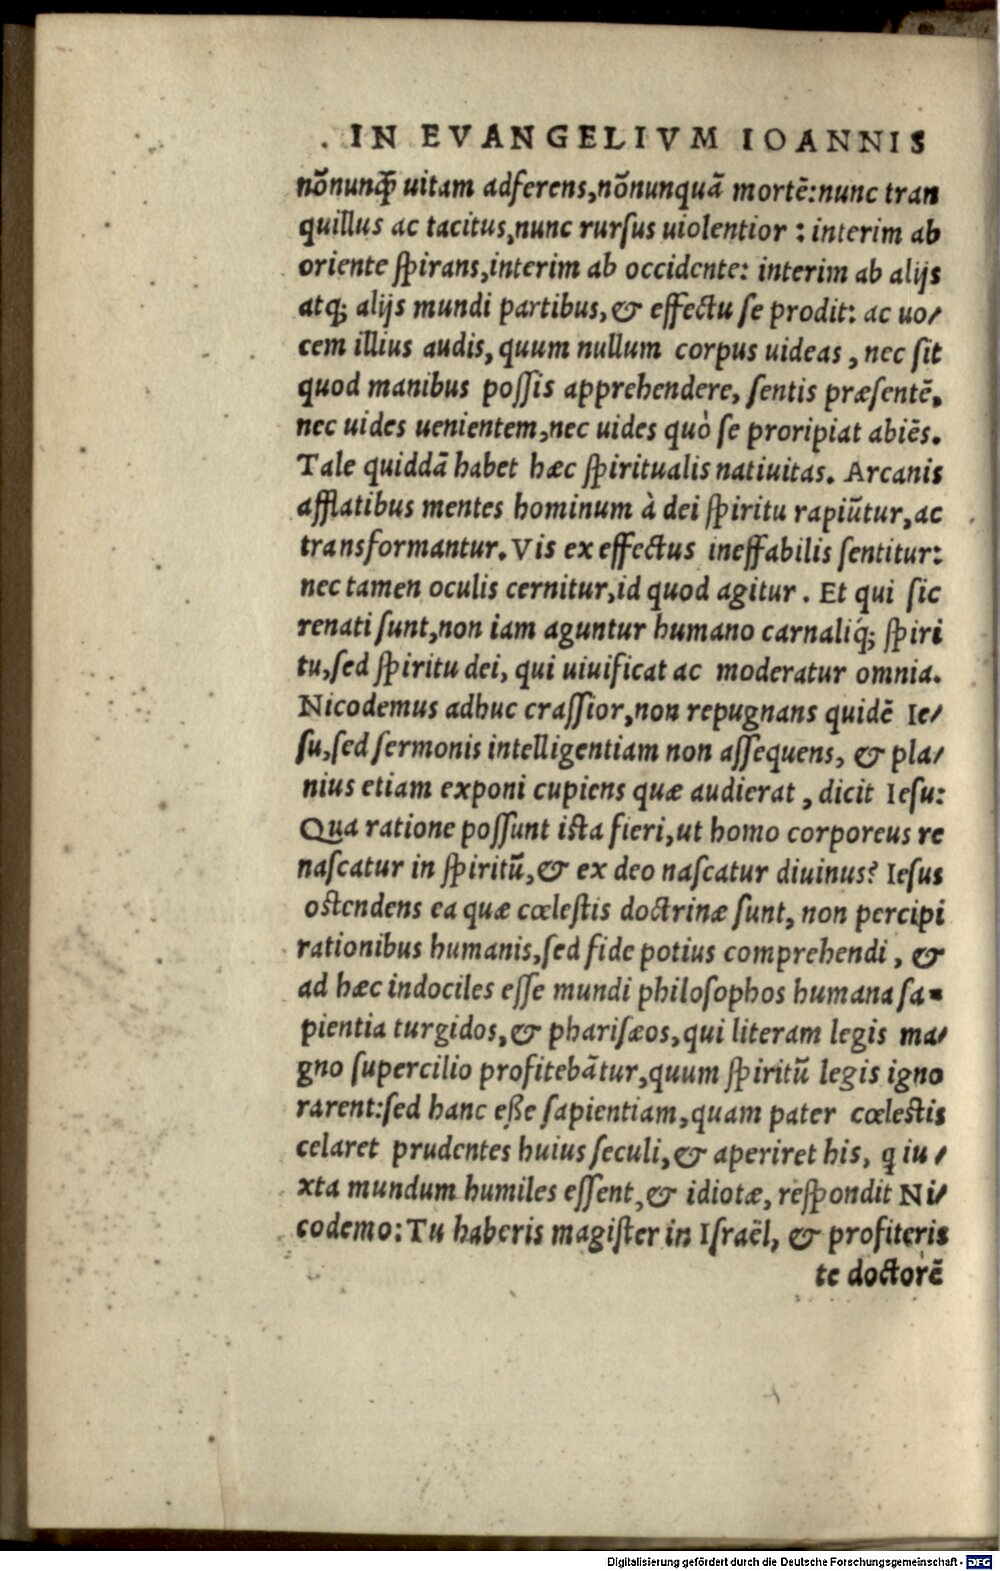 . IN EVANGELIVM IOANNIS
nõnunꝙ̃ uitam adferens,nõnunquã mortẽ:nunc tran
quillus ac tacitus,nunc rursus uiolentior : interim ab
oriente spirans,interim ab occidente: interim ab alijs
atq; alijs mundi partibus, & effectu se prodit: ac uo/
cem illius audis, quum nullum corpus uideas , nec sit
quod manibus possis apprehendere, sentis præsentẽ,
nec uides uenientem,nec uides quò se proripiat abiẽs.
Tale quiddã habet hæc spiritualis natiuitas. Arcanis
afflatibus mentes hominum à dei spiritu rapiũtur,ac
transformantur. Vis ex effectus ineffabilis sentitur:
nec tamen oculis cernitur,id quod agitur . Et qui sic
renati sunt,non iam aguntur humano carnaliq́; spiri
tu,sed spiritu dei, qui uiuificat ac moderatur omnia.
Nicodemus adhuc crassior,non repugnans quidẽ Ie/
su,sed sermonis intelligentiam non assequens, & pla/
nius etiam exponi cupiens quæ audierat , dicit Iesu:
Qua ratione possunt ista fieri,ut homo corporeus re
nascatur in spiritũ,& ex deo nascatur diuinus? Iesus
ostendens ea quæ cœlestis doctrinæ sunt, non percipi
rationibus humanis,sed fide potius comprehendi , &
ad hæc indociles esse mundi philosophos humana sa-
pientia turgidos,& pharisæos,qui literam legis ma/
gno supercilio profitebãtur,quum spiritũ legis igno
rarent:sed hanc eße sapientiam,quam pater cœlestis
celaret prudentes huius seculi,& aperiret his, q iu /
xta mundum humiles essent,& idiotæ, respondit Ni/
codemo: Tu haberis magister in Israël, & profiteris
te doctorẽ
Digitalisierung gefördert durch die Deutsche Forschungsgemeinschaft - DFG